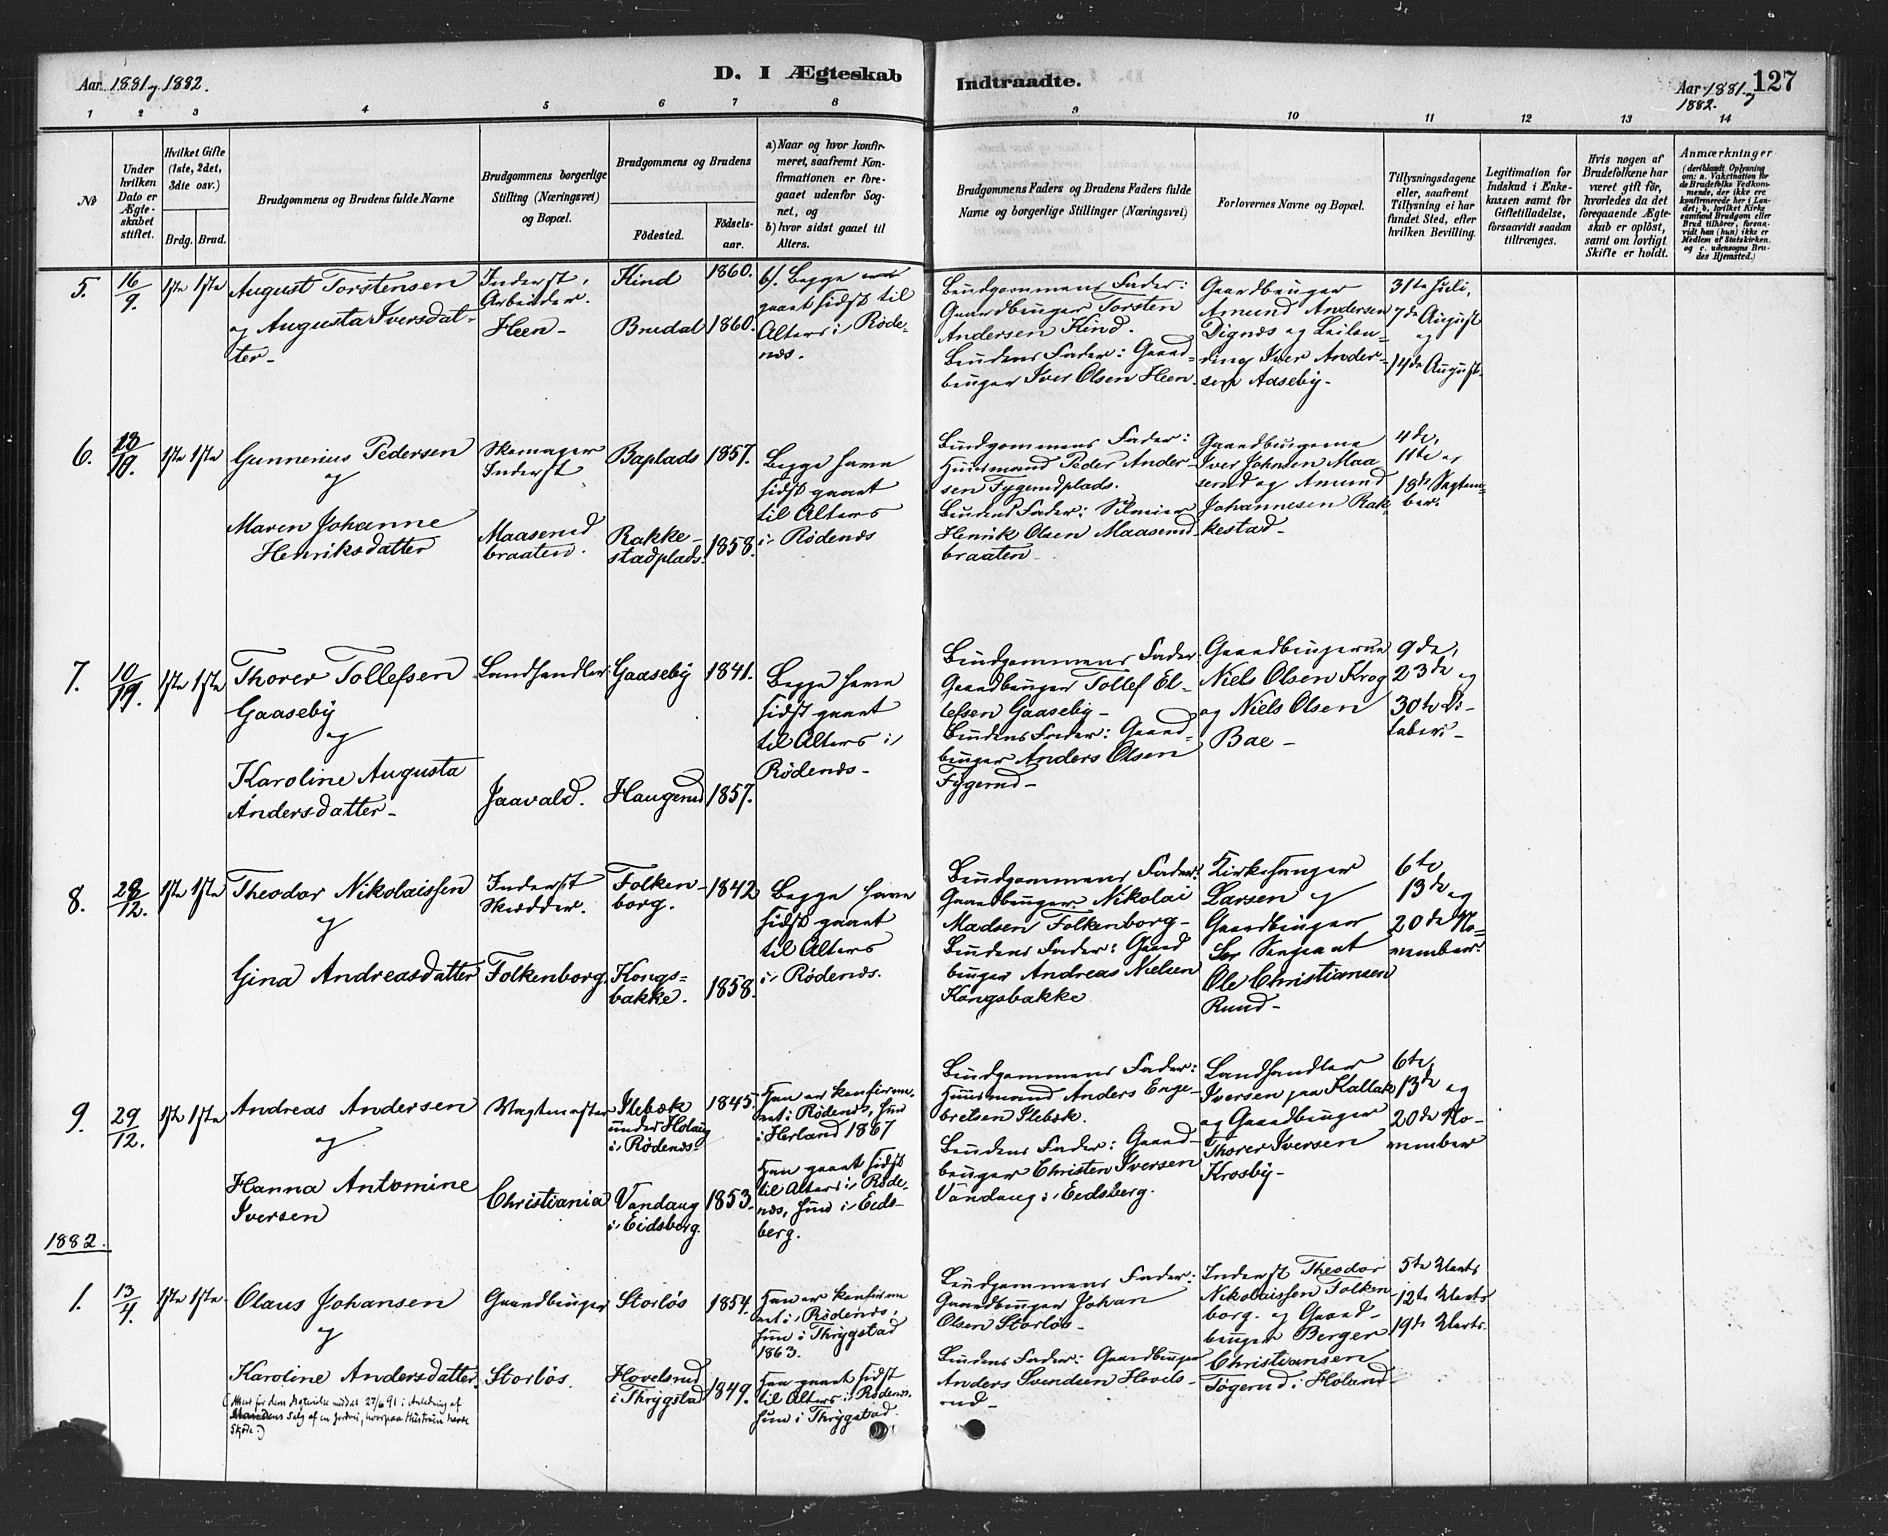 Aar 1881 og 1882.
D. I Ægteskab
Indtraadte.
Aar 1881 og
1882.
127
1 2 3 4 5 6 7 8 9 10 11 12 13 14
No
Under
hvilken
Dato er
Ægte-
skabet
stiftet.
Hvilket Gifte
(1ste, 2det,
3die osv.)
Brdg. Brud.
Brudgommens og Brudens fulde Navne
Brudgommens borgerlige
Stilling (Næringsvei)
og Bopæl.
Brudgommens og Brudens
Fødested.
Fødsels-
aar.
a) Naar og hvor konfir-
meret, saafremt Kon-
firmationen er fore-
gaaet udenfor Sog-
net, og
b) hvor sidst gaaet til
Alters.
Brudgommens Faders og Brudens Faders fulde
Navne og borgerlige Stillinger (Næringsvei)
Forlovernes Navne og Bopæl.
Tillysningsdagene
eller, saafremt
Tillysning ei har
fundet Sted, efter
hvilken Bevilling.
Legitimation for
Indskud i Enke-
kassen samt for
Giftetilladelse,
forsaavidt saadan
tiltrænges.
Hvis nogen af
Brudefolkene har
været gift før,
hvorledes da det
foregaaende Ægte-
skab er opløst,
samt om lovligt
Skifte er holdt.
Anmærkninger
(deriblandt Oplysning
om: a. Vakcination for
de Brudefolks Vedkom-
mende, der ikke ere
konfirmerede her i Lan-
det; b. hvilket Kirke
samfund Brudgom eller
Brud tilhører, forsaa-
vidt han (hun) ikke er
Medlem af Statskirken,
og c. udensogns Bru-
des Hjemsted.)
5. 16/9. 1ste 1ste
August Torstensen
og Augusta Iversdat-
ter
Inderst,
Arbeider.
Heen
Kind 1860.
Brudal 1860.
b/. Begge
gaaet sidst til
Alters i Røde-
næs.
Brudgommens Fader:
Gaardbruger Torsten
Andersen Kind.
Brudens Fader: Gaard-
bruger Iver Olsen Heen
Gaardbruger
Amund Andersen
Dignæs og Leilen-
ding Iver Ander-
sen Aaseby
31te Juli,
7de August
og
14de August
6. 1ste 1ste
Gunnerius Pedersen
og
Maren Johanne
Henriksdatter
Skomager
Inderst
Maaserud
braaten.
Baplads 1857.
Rakke-
stadplads 1858.
Begge have
sidst gaaet
til Alters
i Rødenæs
Brudgommens Fader:
Huusmand Peder Ander-
sen Fygerudplads.
Brudens Fader: Selveier
Henrik Olsen Maaserud
braaten
Gaardbrugerne
Iver Johnsen Maa
serud og Amund
Johannesen Rak-
kestad
4de,
11te og
18de Septem-
ber.
7. 1ste 1ste
Thorer Tollefsen
Gaaseby
og
Karoline Augusta
Andersdatter
Landhandler
Jaavald.
Gaaseby 1841.
Haugerud 1857.
Begge have
sidst gaaet
til Alters i
Rødenæs
Brudgommens Fader:
Gaardbruger Tollef El-
lefsen Gaaseby
Brudens Fader: Gaard-
bruger Anders Olsen
Fygerud
Gaardbrugerne
Niels Olsen Krog
og Niels Olsen
Bae
9de,
23de og
30te Ok-
tober.
8. 28/12. 1ste 1ste
Theodor Nikolaissen
og
Gina Andreasdatter
Inderst
Skrædder.
Folkenborg.
Folken-
borg. 1842
Kongs-
bakke. 1858.
Begge have
sidst gaaet
til Alters
i Rødenæs.
Brudgommens Fader:
Gaardbruger Nikolai
Madsen Folkenborg
Brudens Fader: Gaard
bruger Andreas Nielsen
Kongsbakke
Kirkesanger
Larsen og
Gaardbruger
Sergeant
Ole Christiansen
Ruud
6te
13de og
20de No-
vember.
9. 29/12. 1ste 1ste
Andreas Andersen
og
Hanna Antomine
Iversen
Vagtmester
Christiania
Slebæk
under Holaug
i Rødenæs 1845.
Vandaug
i Eidsberg. 1853.
Han er konfirme-
ret i Rødenæs, hun
i Herland 1867
Han gaaet sidst
til Alters i Røde-
næs, hun i Eids-
berg.
Brudgommens Fader:
Huusmand Anders Enge-
bretsen Slebæk.
Brudens Fader: Gaard-
bruger Christen Iversen
Vandaug i Eidsberg.
Landhandler
Iversen paa Kallak
og Gaardbruger
Thorer Iversen
Krosby
6te,
13de og
20de No-
vember
1882.
1. 13/4. 1ste 1ste
Olaus Johansen
og
Karoline Andersdatter.
(Attest for dem Ægtevielse meddelt 27/6 91 i Anledning af
Mandens Salg af en Jordvei, hvorpaa Hustruen havde
Skjøde.)
Gaardbruger
Storløs.
Storløs 1854.
Hovelsrud
i Thrygstad 1849.
Han er konfirme
ret i Rødenæs,
hun i Thrygstad
1863.
Han gaaet sidst
til Alters i Rødenæs,
hun i Thrygstad.
Brudgommens Fader:
Gaardbruger Johan
Olsen Storløs
Brudens Fader: Gaardbruger
Anders Svendsen Hovels-
rud
Inderst Theodor
Nikolaissen Folken
borg. og Gaard-
bruger Berger
Christiansen
Tøgerud i Høland
5te Marts
12te Marts
19de Marts.